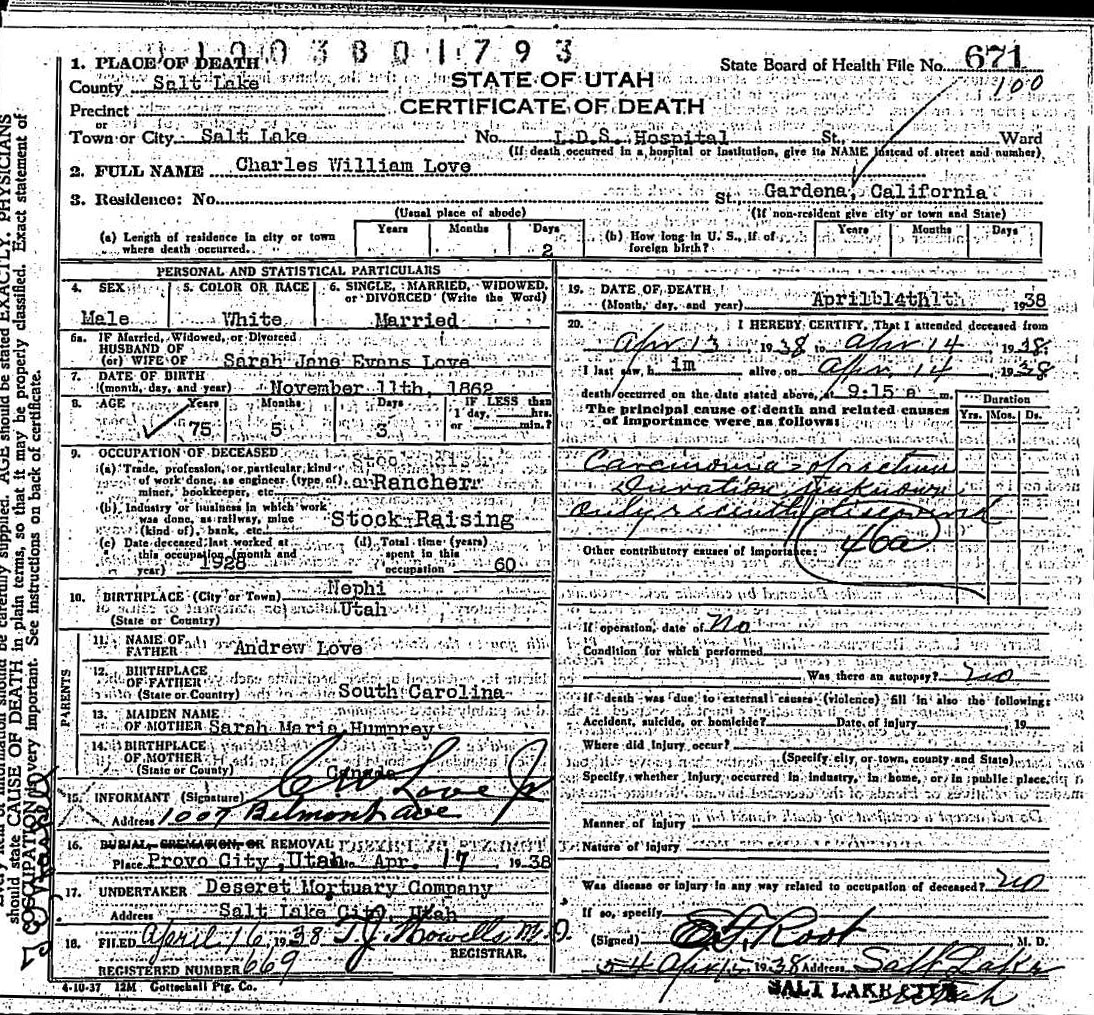 1 0 0 3 8 0 1 7 9 3
1. PLACE OF DEATH
County Salt Lake
STATE OF UTAH
State Board of Health File No. 671
100
Precinct
CERTIFICATE OF DEATH
or
Town or City Salt Lake No. L.D.S. Hospital St., Ward
(If death occurred in a hospital or institution, give its NAME instead of street and number)
2. FULL NAME Charles William Love
3. Residence: No. St., Gardena, California
(Usual place of abode) (If non-resident give city or town and State)
(a) Length of residence in city or town where death occurred. Years Months Days 2
(b) How long in U. S., if of foreign birth? Years Months Days
PERSONAL AND STATISTICAL PARTICULARS
4. SEX Male
5. COLOR OR RACE White
6. SINGLE, MARRIED, WIDOWED, or DIVORCED (Write the Word) Married
6a. IF Married, Widowed, or Divorced
HUSBAND OF
(or) WIFE OF Sarah Jane Evans Love
7. DATE OF BIRTH
(month, day, and year) November 11th, 1862
8. AGE Years 75 Months 5 Days 3
IF LESS than 1 day, hrs. or min.?
9. OCCUPATION OF DECEASED
(a) Trade, profession, or particular kind
of work done, as engineer (type of), or Rancher
miner, bookkeeper, etc.
(b) Industry or business in which work
was done, as railway, mine Stock Raising
(kind of), bank, etc.
(c) Date deceased last worked at
this occupation (month and
year) 1928
(d) Total time (years)
spent in this
occupation 60
10. BIRTHPLACE (City or Town) Nephi
Utah
(State or Country)
PARENTS
11. NAME OF
FATHER Andrew Love
12. BIRTHPLACE
OF FATHER
(State or Country) South Carolina
13. MAIDEN NAME
OF MOTHER Sarah Maria Humprey
14. BIRTHPLACE
OF MOTHER
(State or County) Canada
15. INFORMANT (Signature) C W Love Jr
Address 1007 Belmont ave
16. BURIAL, CREMATION, OR REMOVAL
Place Provo City, Utah Apr. 17 1938
17. UNDERTAKER Deseret Mortuary Company
Address Salt Lake City, Utah
18. FILED April 16, 1938 T.J. Howells M.D.
REGISTRAR.
REGISTERED NUMBER 669
4-10-37 12M Gottschall Ptg. Co.
19. DATE OF DEATH
(Month, day, and year) April 14th 1938
20. I HEREBY CERTIFY, That I attended deceased from
Apr 13, 1938 to Apr 14 1938.
I last saw h im alive on Apr 14 1938
death occurred on the date stated above, at 9:15 a m.
The principal cause of death and related causes
of importance were as follows:
Duration
Yrs. Mos. Ds.
Carcinoma of rectum
Duration unknown
only recently discovered
46a
Other contributory causes of importance:
If operation, date of No
Condition for which performed
Was there an autopsy? no
If death was due to external causes (violence) fill in also the following:
Accident, suicide, or homicide? Date of injury 19
Where did injury occur?
(Specify city, or town, county and State)
Specify whether injury occurred in industry, in home, or in public place.
Manner of injury
Nature of injury
Was disease or injury in any way related to occupation of deceased? no
If so, specify
(Signed) Root M. D.
Apr 15 1938 Address Salt Lake
SALT LAKE CITY
Utah
should be carefully supplied. AGE should be stated EXACTLY. PHYSICIANS
should state CAUSE OF DEATH in plain terms, so that it may be properly classified. Exact statement of
OCCUPATION is very important. See instructions on back of certificate.